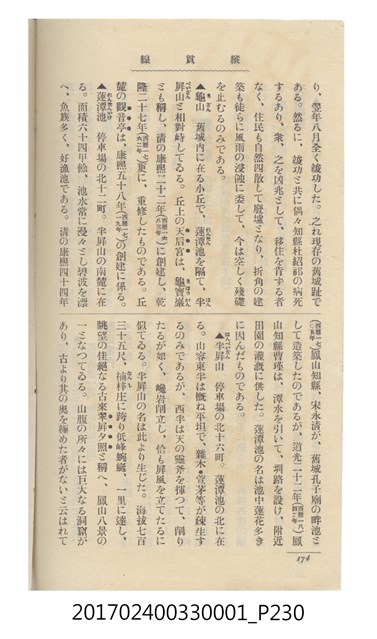 縱貫線
り、翌年八月全く竣功した。之れ現存の舊城趾で
ある。然るに、竣功と共に偶々知縣杜紹祁の病死
するあり、衆、之を凶兆として、移住を肯する者
なく、住民も自然四散して廢墟となり、折角の建
築も徒らに風雨の浸蝕に委して、今は空しく殘礎
を止むるのみである。
▲龜山 舊城内に在る小丘で、蓮潭池を隔て、半
屏山と相對峙してゐる。丘上の天后宮は、龜寳巖
とも稱し、清の康熙二十二年に創建し、乾
隆二十七年更に、重修したものである。丘
麓の觀音亭は、康熙五十八年の創建に係る。
▲蓮潭池 停車場の北十二町。半屏山の南麓に在
る。面積六十四甲餘、池水常に漫々とし碧波を漂
へ、魚族多く、好漁池である。清の康熙四十四年
鳳山知縣、宋永清が、舊城孔子廟の畔池と
して造築したのであるが、道光二十二年鳳
山知縣曹瑾は、潭水を引いて、圳路を設け、附近
田園の灌漑に供した。蓮潭池の名は池中蓮花多き
に因んだものである。
▲半屏山 停車場の北十六町。蓮潭池の北に在
る。山容東半は概ね平坦で、雜木・萱茅等が疎生す
るのみであるが、西半は天の巓斧を揮つて、削り
たるが如く、巉岩削立し、恰も屏風を立てたるに
似てゐる。半屏山の名は此より生じた。海拔七百
三十五尺、楠梓庄に跨り低峰蜿蜒、一里に達し、
眺望の佳絕なる古來翠屏夕照と稱へ、鳳山八景の
一となつてゐる。山腹の所々には巨大なる洞窟が
あり、古より其の奧を極めた者がないと云はれて
174
201702400330001_P230